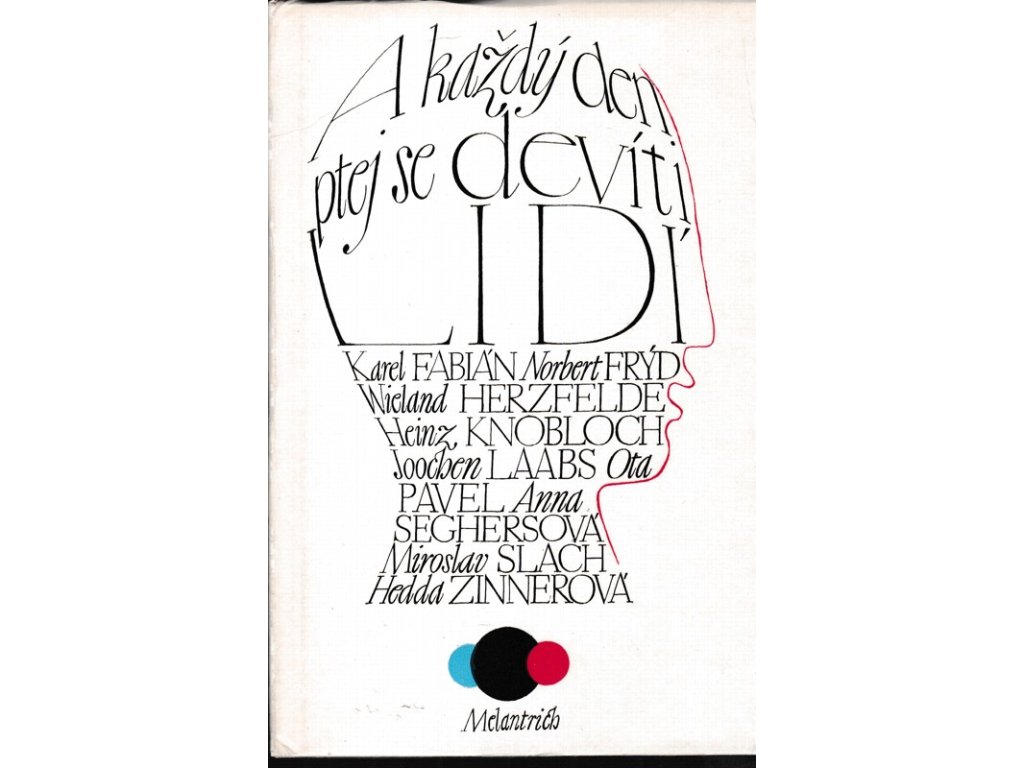 A každý den
ptej se devíti
LIDÍ
Karel FABIÁN Norbert FRÝD
Wieland HERZFELDE
Heinz KNOBLOCH
Joochen LAABS Ota
PAVEL Anna
SEGHERSOVÁ
Miroslav SLACH
Hedda ZINNEROVÁ
Melantrich